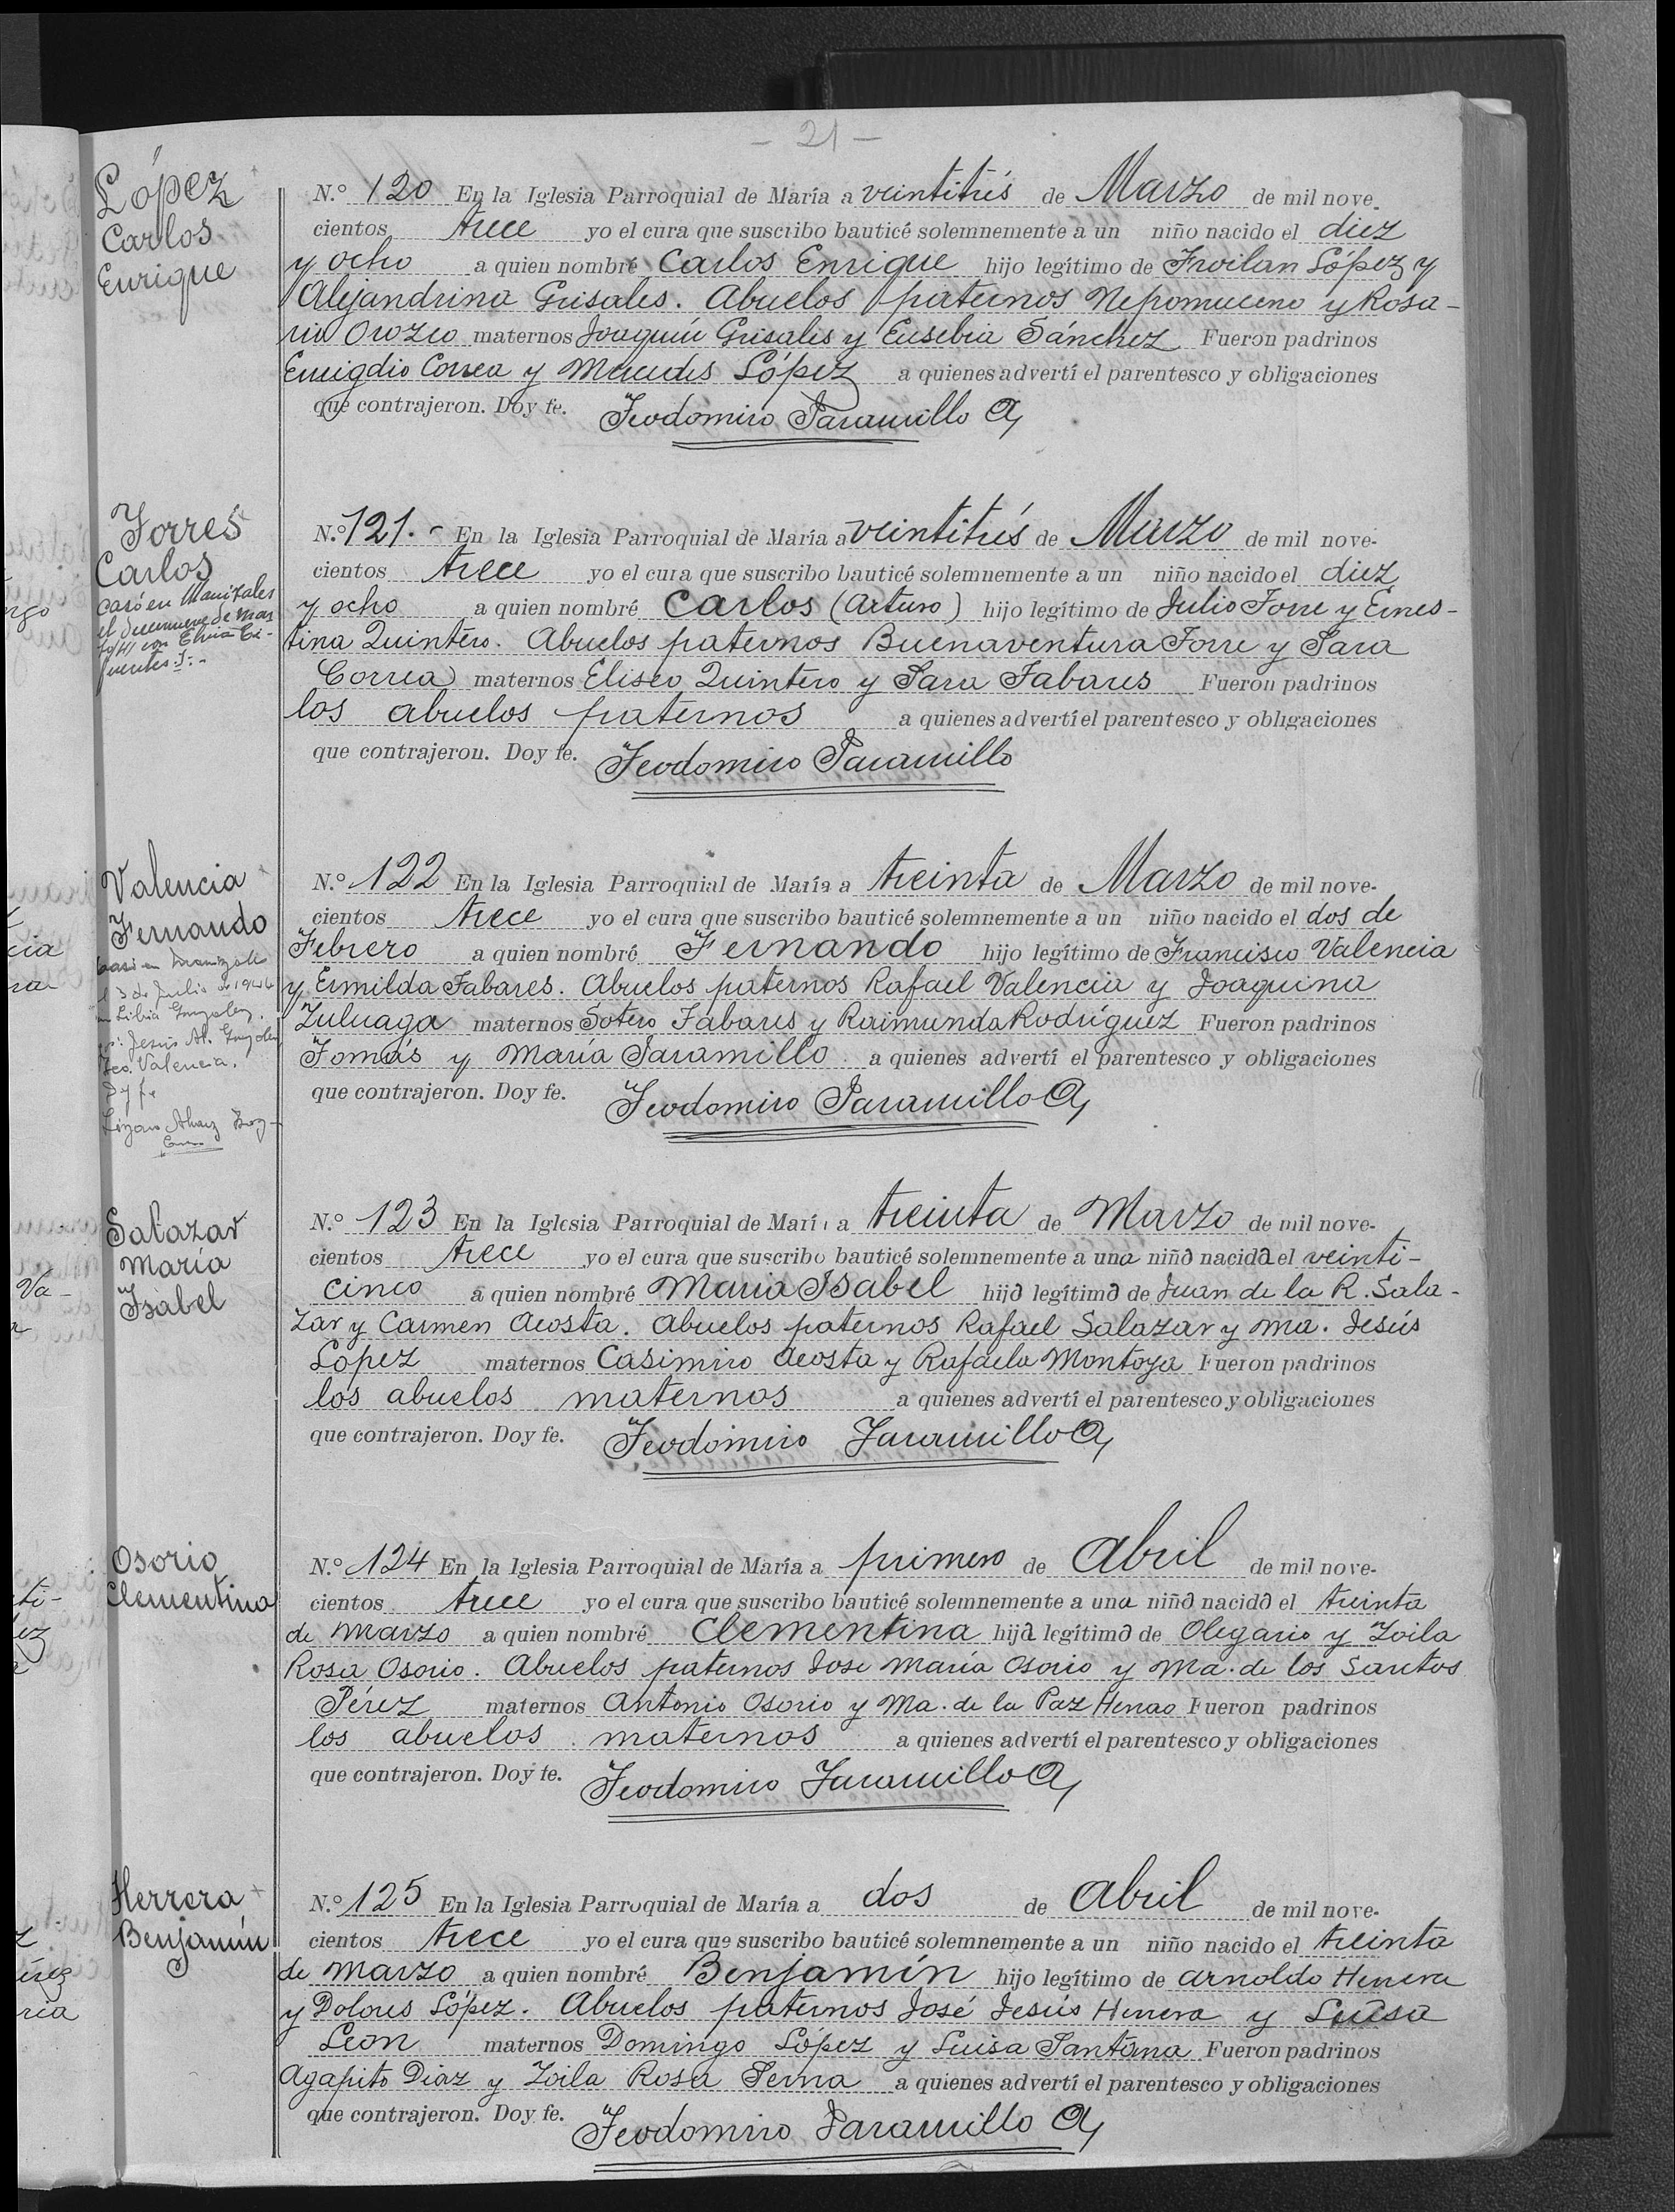 - 21 -
López
Carlos
Enrique
N.º 120 En la Iglesia Parroquial de María a veintitrés de Marzo de mil nove-
cientos trece yo el cura que suscribo bauticé solemnemente a un niño nacido el diez
y ocho a quien nombré Carlos Enrique hijo legítimo de Froilan López y
Alejandrina Grisales. Abuelos paternos Nepomuceno y Rosa-
rio Orozco maternos Joaquín Grisales y Eusebia Sánchez Fueron padrinos
Emigdio Correa y Mercedes López a quienes advertí el parentesco y obligaciones
que contrajeron. Doy fe. Teodomiro Jaramillo A,
Torres
Carlos
Casó en Manizales
el diecinueve de mar
con Elvia Ci-
fuentes
N.º 121.- En la Iglesia Parroquial de María a veintitrés de Marzo de mil nove-
cientos trece yo el cura que suscribo bauticé solemnemente a un niño nacido el diez
y ocho a quien nombré Carlos (Arturo) hijo legítimo de Julio Torre y Ernes-
tina Quintero. Abuelos paternos Buenaventura Torre y Sara
Correa maternos Eliseo Quintero y Sara Tabares Fueron padrinos
los abuelos paternos a quienes advertí el parentesco y obligaciones
que contrajeron. Doy fe. Teodomiro Jaramillo
Valencia
Fernando
Casó en Manizales
el 3 de Julio de 1944
con Libia Gonzalez.
Jesús Ab. Gonzalez
Fco. Valencia.
D y fe
N.º 122 En la Iglesia Parroquial de María a treinta de Marzo de mil nove-
cientos trece yo el cura que suscribo bauticé solemnemente a un niño nacido el dos de
Febrero a quien nombré Fernando hijo legítimo de Francisco Valencia
y Ermilda Tabares. Abuelos paternos Rafael Valencia y Joaquina
Zuluaga maternos Sotero Tabares y Raimunda Rodríguez Fueron padrinos
Tomás y María Jaramillo a quienes advertí el parentesco y obligaciones
que contrajeron. Doy fe. Teodomiro Jaramillo A,
Salazar
María
Isabel
N.º 123 En la Iglesia Parroquial de María a treinta de Marzo de mil nove-
cientos trece yo el cura que suscribo bauticé solemnemente a una niña nacida el veinti-
cinco a quien nombré María Isabel hija legítima de Juan de la R. Sala-
zar y Carmen Acosta. Abuelos paternos Rafael Salazar y Ma. Jesús
López maternos Casimiro Acosta y Rafaela Montoya Fueron padrinos
los abuelos maternos a quienes advertí el parentesco y obligaciones
que contrajeron. Doy fe. Teodomiro Jaramillo A,
Osorio
Clementina
N.º 124 En la Iglesia Parroquial de María a primero de Abril de mil nove-
cientos trece yo el cura que suscribo bauticé solemnemente a una niña nacida el treinta
de Marzo a quien nombré Clementina hija legítima de Olegario y Zoila
Rosa Osorio. Abuelos paternos José María Osorio y Ma. de los Santos
Pérez maternos Antonio Osorio y Ma. de la Paz Henao Fueron padrinos
los abuelos maternos a quienes advertí el parentesco y obligaciones
que contrajeron. Doy fe. Teodomiro Jaramillo A,
Herrera
Benjamín
N.º 125 En la Iglesia Parroquial de María a dos de Abril de mil nove-
cientos trece yo el cura que suscribo bauticé solemnemente a un niño nacido el treinta
de Marzo a quien nombré Benjamín hijo legítimo de Arnoldo Herrera
y Dolores López. Abuelos paternos José Jesús Herrera y Luisa
Leon maternos Domingo López y Luisa Santana Fueron padrinos
Agapito Diaz y Zoila Rosa Serna a quienes advertí el parentesco y obligaciones
que contrajeron. Doy fe. Teodomiro Jaramillo A,